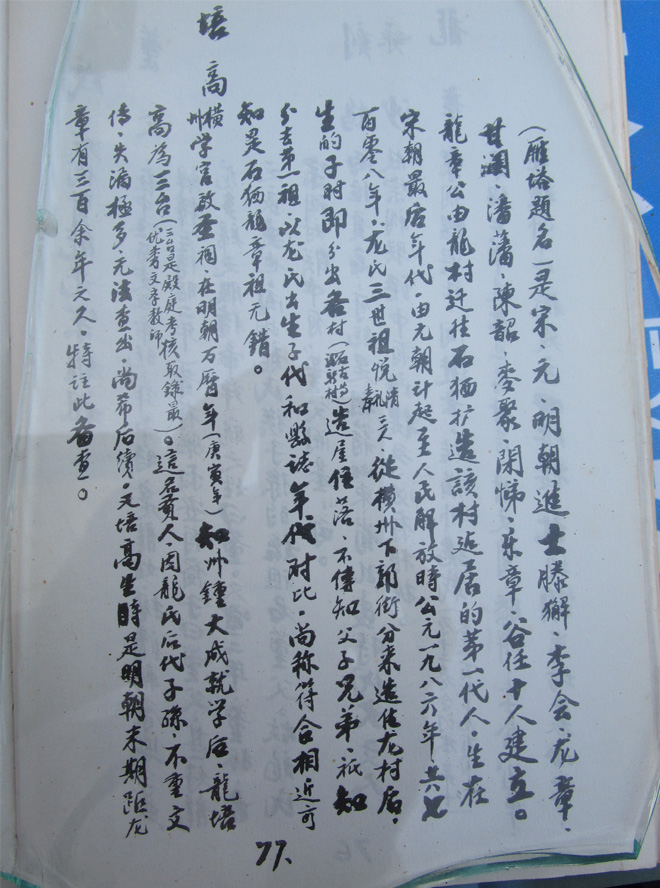 (雁塔題名)是宋、元、明朝進士滕獬、李会、龙章、
甘澗、潘藩、陳韶、李聚、閑悌、乐章、谷任十人建立。
龍章公由龍村迁往石牺扩造該村延居的第一代人、生在
宋朝最后年代、由元朝计起至人民解放時公元一九八六年、共七
百零八年。龙氏三世祖悦清 三人、從横州下郭街分来造住龙村后、
生的子时即分出各村造屋住落、不傳知父子兄弟、祇知
分去第一祖、以龙氏出生子代和縣誌年代对比、尚称符合相近可
知是石牺龍章祖无錯。
培高
横州学官啟圣祠、在明朝万曆年(庚寅年)知州鍾大成就学后、龍培
高為三台(三台是殿庭考核取録最优秀文孝教师)。這名貴人、因龍氏后代子孫、不重文
傳、失漏極多无法查出、尚希后續、又培高生時是明朝末期距龙
章有三百余年之久、特註此备查。
77、